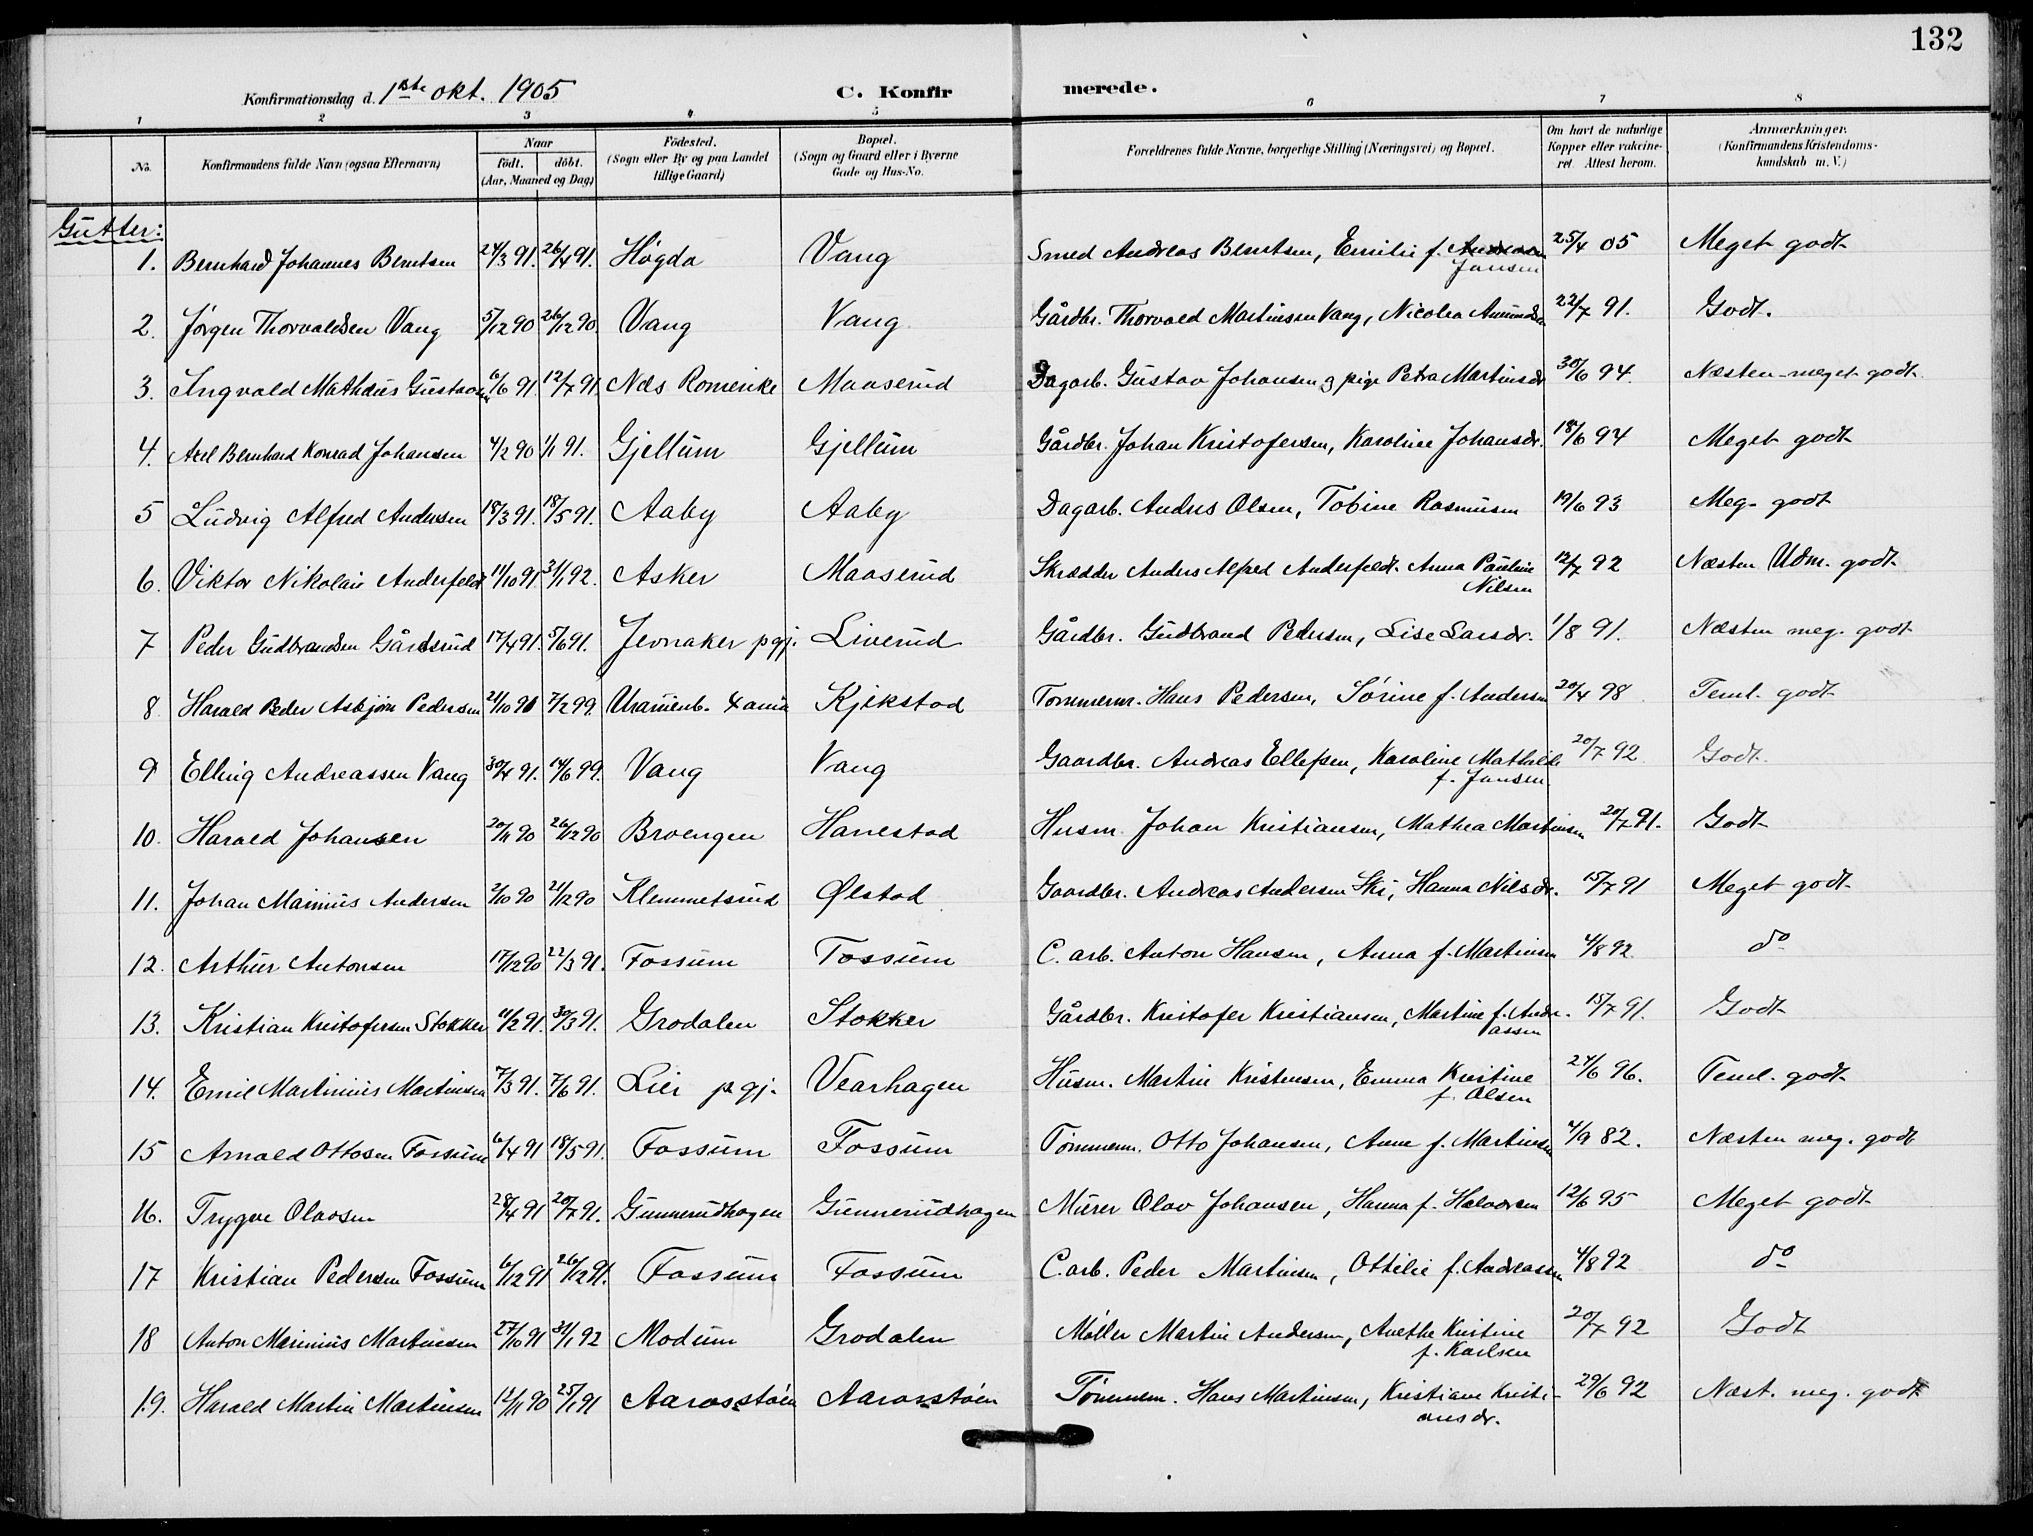 132
Konfirmationsdag d. 1ste okt. 1905 C. Konfirmerede.
1 2 3 4 5 6 7 8
No. Konfirmandens fulde Navn (ogsaa Efternavn) Naar født. døbt. (Aar, Maaned og Dag) Födested. (Sogn eller By og paa Landet tillige Gaard) Bopæl. (Sogn og Gaard eller i Byerne Gade og Hus-No. Forældrenes fulde Navne, borgerlige Stilling (Næringsvei) og Bopæl. Om havt de naturlige Kopper eller vaccineret. Attest herom. Anmærkninger. (Konfirmandens Kristendomskundskab m. V.)
Gutter:
1. Bernhard Johannes Berntsen 24/3 91. 26/4 91. Høgda Vang Smed Andreas Berntsen, Emilie f. Jansen 25/4 05 Meget godt
2. Jørgen Thorvaldsen Vang 5/12 90 26/12 90 Vang Vang Gårdbr. Thorvald Martinsen Vang, Nicolea Amundsdr. 22/7 91. Godt.
3. Ingvald Mathæus Gustavsen 6/6 91. 12/7 91. Næs Romerike Maaserud Dagarb. Gustav Johansen & pige Petra Martinsdr. 30/6 94. Næsten meget godt.
4. Axel Bernhard Konrad Johansen 4/2 90 1/1 91. Gjellum Gjellum Gårdbr. Johan Kristofersen, Karoline Johansdr. 18/6 94 Meget godt
5 Ludvig Alfred Andersen 18/3 91. 18/5 91. Aaby Aaby Dagarb. Anders Olsen, Tobine Rasmusen 19/6 93 Meg. godt
6. Viktor Nikolai Anderfeldt 11/10 91. 31/1 92. Asker Maaserud Skrædder Anders Alfred Anderfeldt. Anna Pauline Nilsen 12/7 92 Næsten Udm. godt
7 Peder Gudbrandsen Gårdsrud 17/4 91. 5/6 91. Jevnaker pgj. Liverud Gårdbr. Gudbrand Pedersen, Lise Larsdr. 1/8 91. Næsten meg. godt
8 Harald Peder Asbjørn Pedersen 21/10 90 7/2 99. Uranienb. Xania Kjekstad Tømmerm. Hans Pedersen, Sørine f. Andersen 20/4 98 Teml. godt
9 Elling Andreassen Vang 30/4 91. 14/6 99. Vang Vang Gaardbr. Andreas Ellefsen, Karoline Mathilde f. Jansen 20/7 92 Godt.
10. Harald Johansen 20/11 90 26/12 90 Braengen Hanestad Husm. Johan Kristiansen, Mathea Martinsen 20/7 91. Godt
11. Johan Marinius Andersen 2/10 90 21/12 90 Klemmetsrud Ølstad Gaardbr. Andreas Andersen Ski, Hanna Nilsdr. 15/7 91 Meget godt
12. Arthur Antonsen 17/12 90 22/3 91. Fossum Fossum C. arb. Anton Hansen, Anna f. Martinsen 4/8 92. do
13. Kristian Kristofersen Stokker 11/2 91. 30/3 91. Grodalen Stokker Gårdbr. Kristofer Kristiansen, Martine f. Andreassen 15/7 91. Godt
14. Emil Martinius Martinsen 7/3 91. 7/6 91. Lier pgj. Vearhagen Husm. Martin Kristensen, Emma Kristine f. Olsen 24/6 96. Teml. godt
15 Arnold Ottosen Fossum 6/4 91 18/5 91. Fossum Fossum Tømmerm. Otto Johansen, Anne f. Martinsen 4/9 82. Næsten meg. godt
16. Trygve Olavsen 28/4 91 20/7 91. Gunnerudhagen Gunnerudhagen Murer Olav Johansen, Hanna f. Halvorsen 12/6 95 Meget godt
17 Kristian Pedersen Fossum 6/12 91 26/12 91. Fossum Fossum C. arb. Peder Martinsen, Ottilie f. Andreassen 4/8 92 do
18 Anton Marinius Martinsen 27/10 91 31/1 92 Modum Grodalen Møller Martin Andersen, Anethe Kristine f. Karlsen 20/7 92 Godt
19. Harald Martin Martinsen 12/11 90 25/1 91 Aarosstøen Aarosstøen Tømmerm. Hans Martinsen, Kristiane Kristiansdr. 29/6 92 Næst. meg. godt